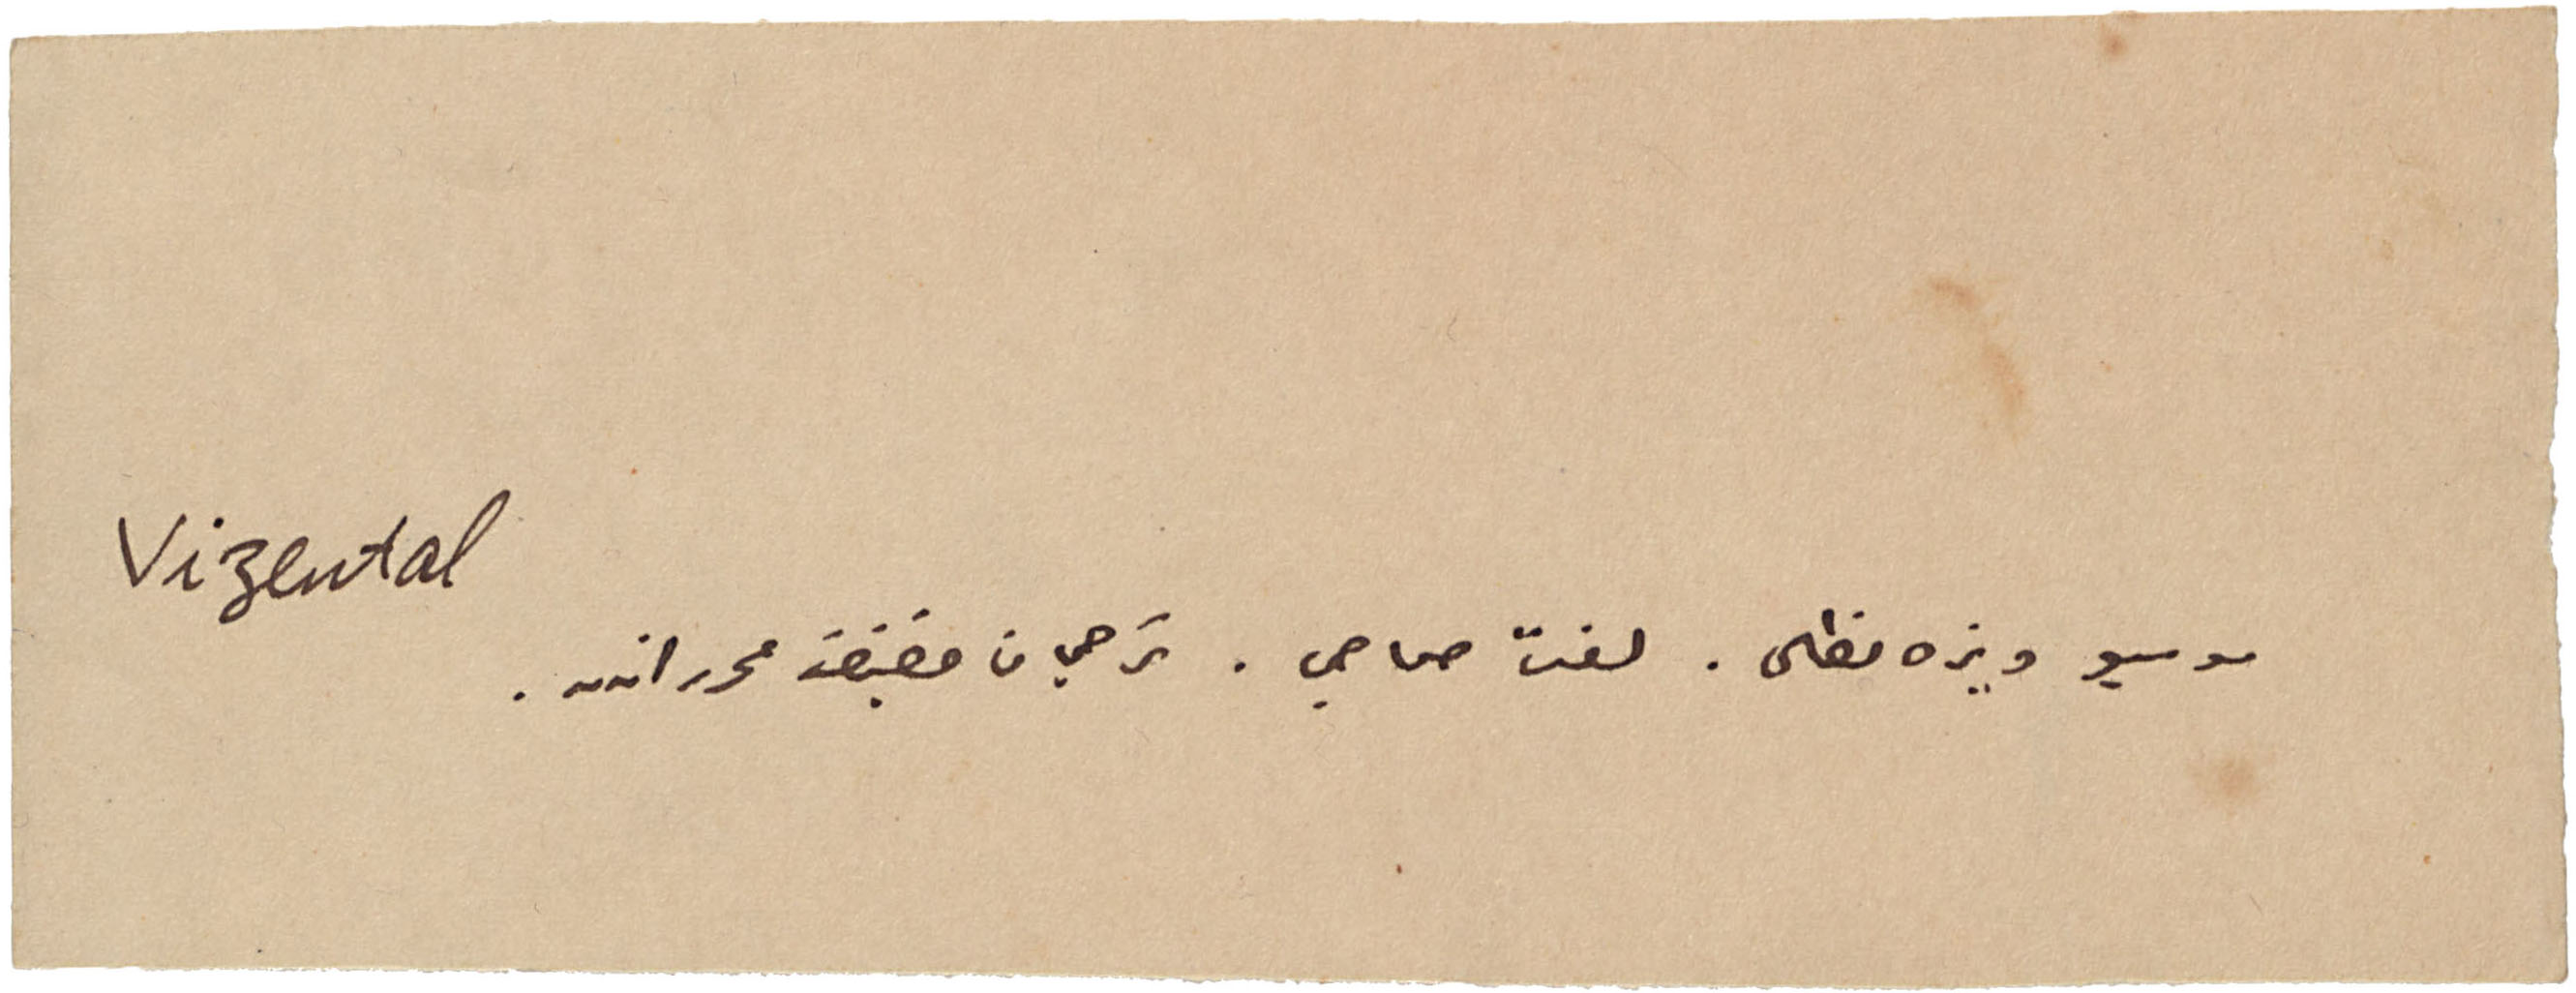 Vizental
موسيو ويزه نطال . لغت صاحبى . ترجمان حقيقت محررلرندن .